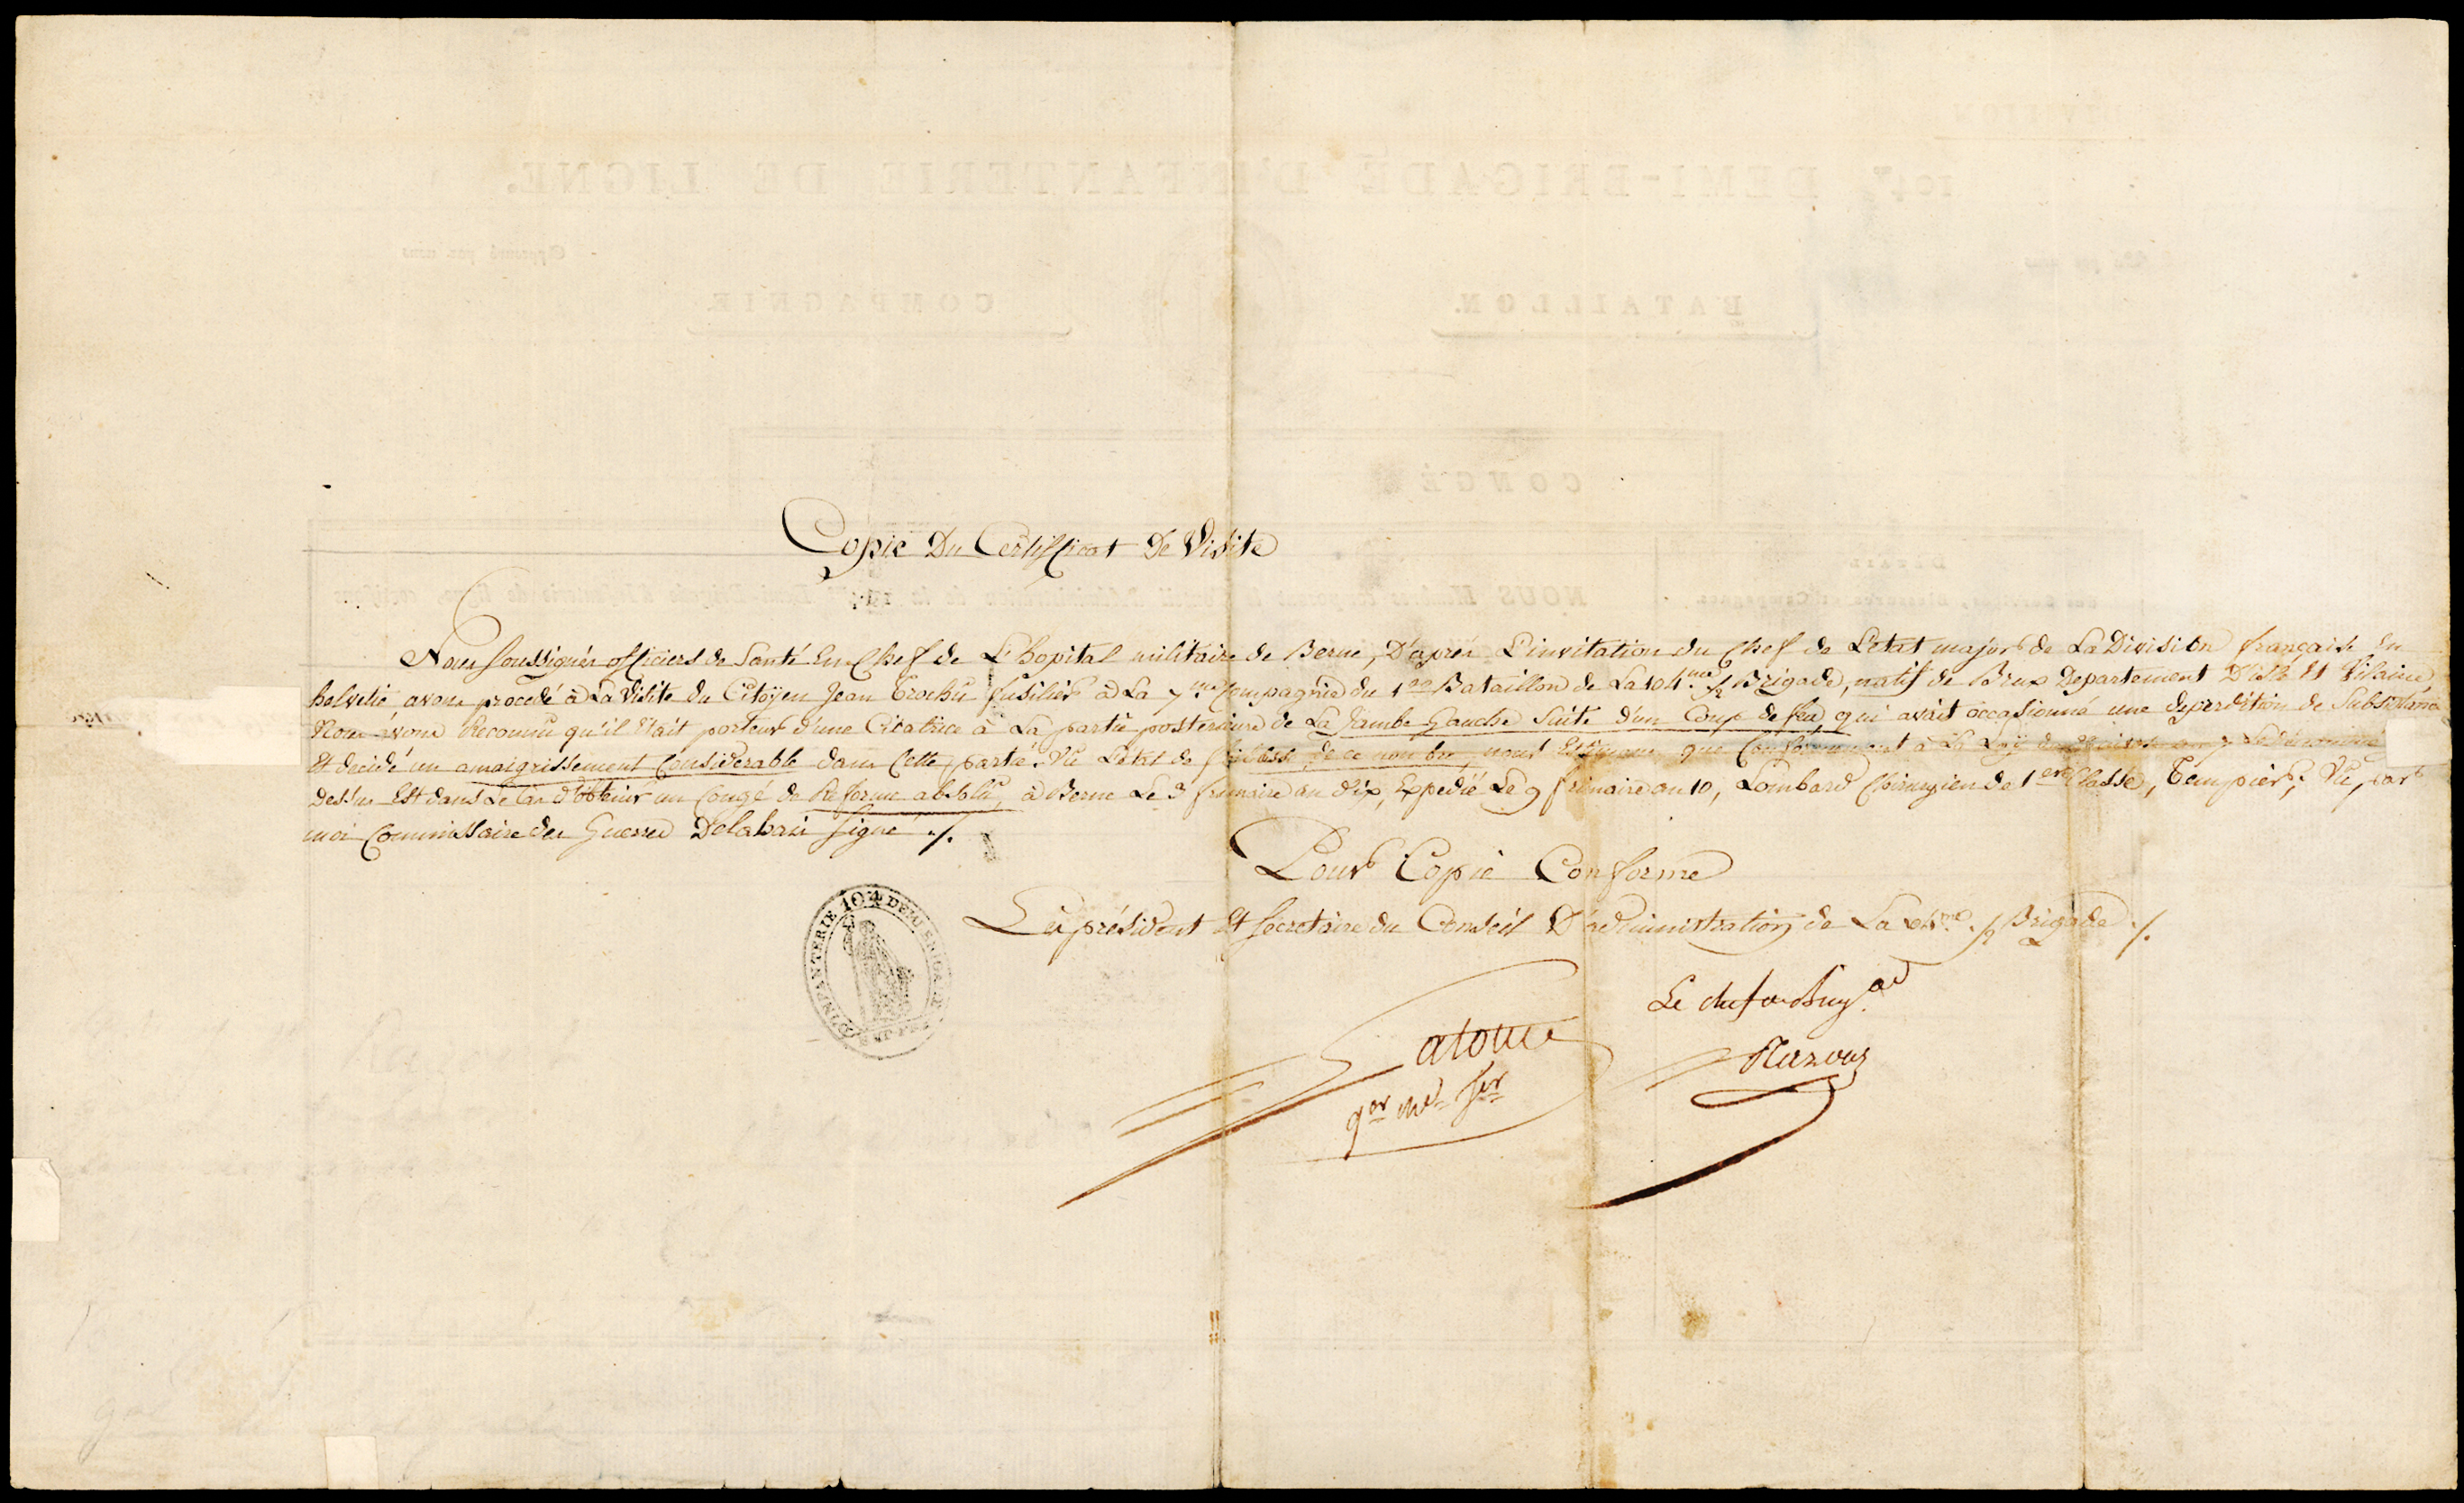 Copie Du Certifficat De Visite
Nous soussignés officiers de Santé En Chef de L'hopital militaire de Berne, D'après L'invitation du Chef de L'etat major de La Division française En
helvetie avons procedé à La Visite du Citoÿen Jean Trochu fusilier à La 7.me Compagnie du 1.er Bataillon de La 104.me ½ Brigade, natif de Brux Departement D'ille Et Vilaine
Nous avons Reconnu qu'il Etait porteur d'une Cicatrice à La partie posterieure de La Jambe Gauche Suite d'un Coup de feu, qui avait occasionné une deperdition de Substance
Et decidé un amaigrissement Considerable dans Cette partie. Vu L'etat de faiblesse de ce membre, nous Estimons que Conformement à La Loÿ du an 7 Le dénommé
Dessus Est dans Le Cas d'obtenir un Congé de Reforme absolu, à Berne Le 3 frimaire an dix, Expedié Le 9 frimaire an 10, Lombard Chirurgien de 1ere Classe, Tempier, Vu par
moi Commissaire des Guerres Delahaie signé ./.
Pour Copie Conforme
Les président Et Secretaire du Conseil D'administration de La 104.me ½ Brigade ./.
D'INFANTERIE 104 DEMI BRIGADE
Le chef de Brig.ade
Latouce
qer me ser